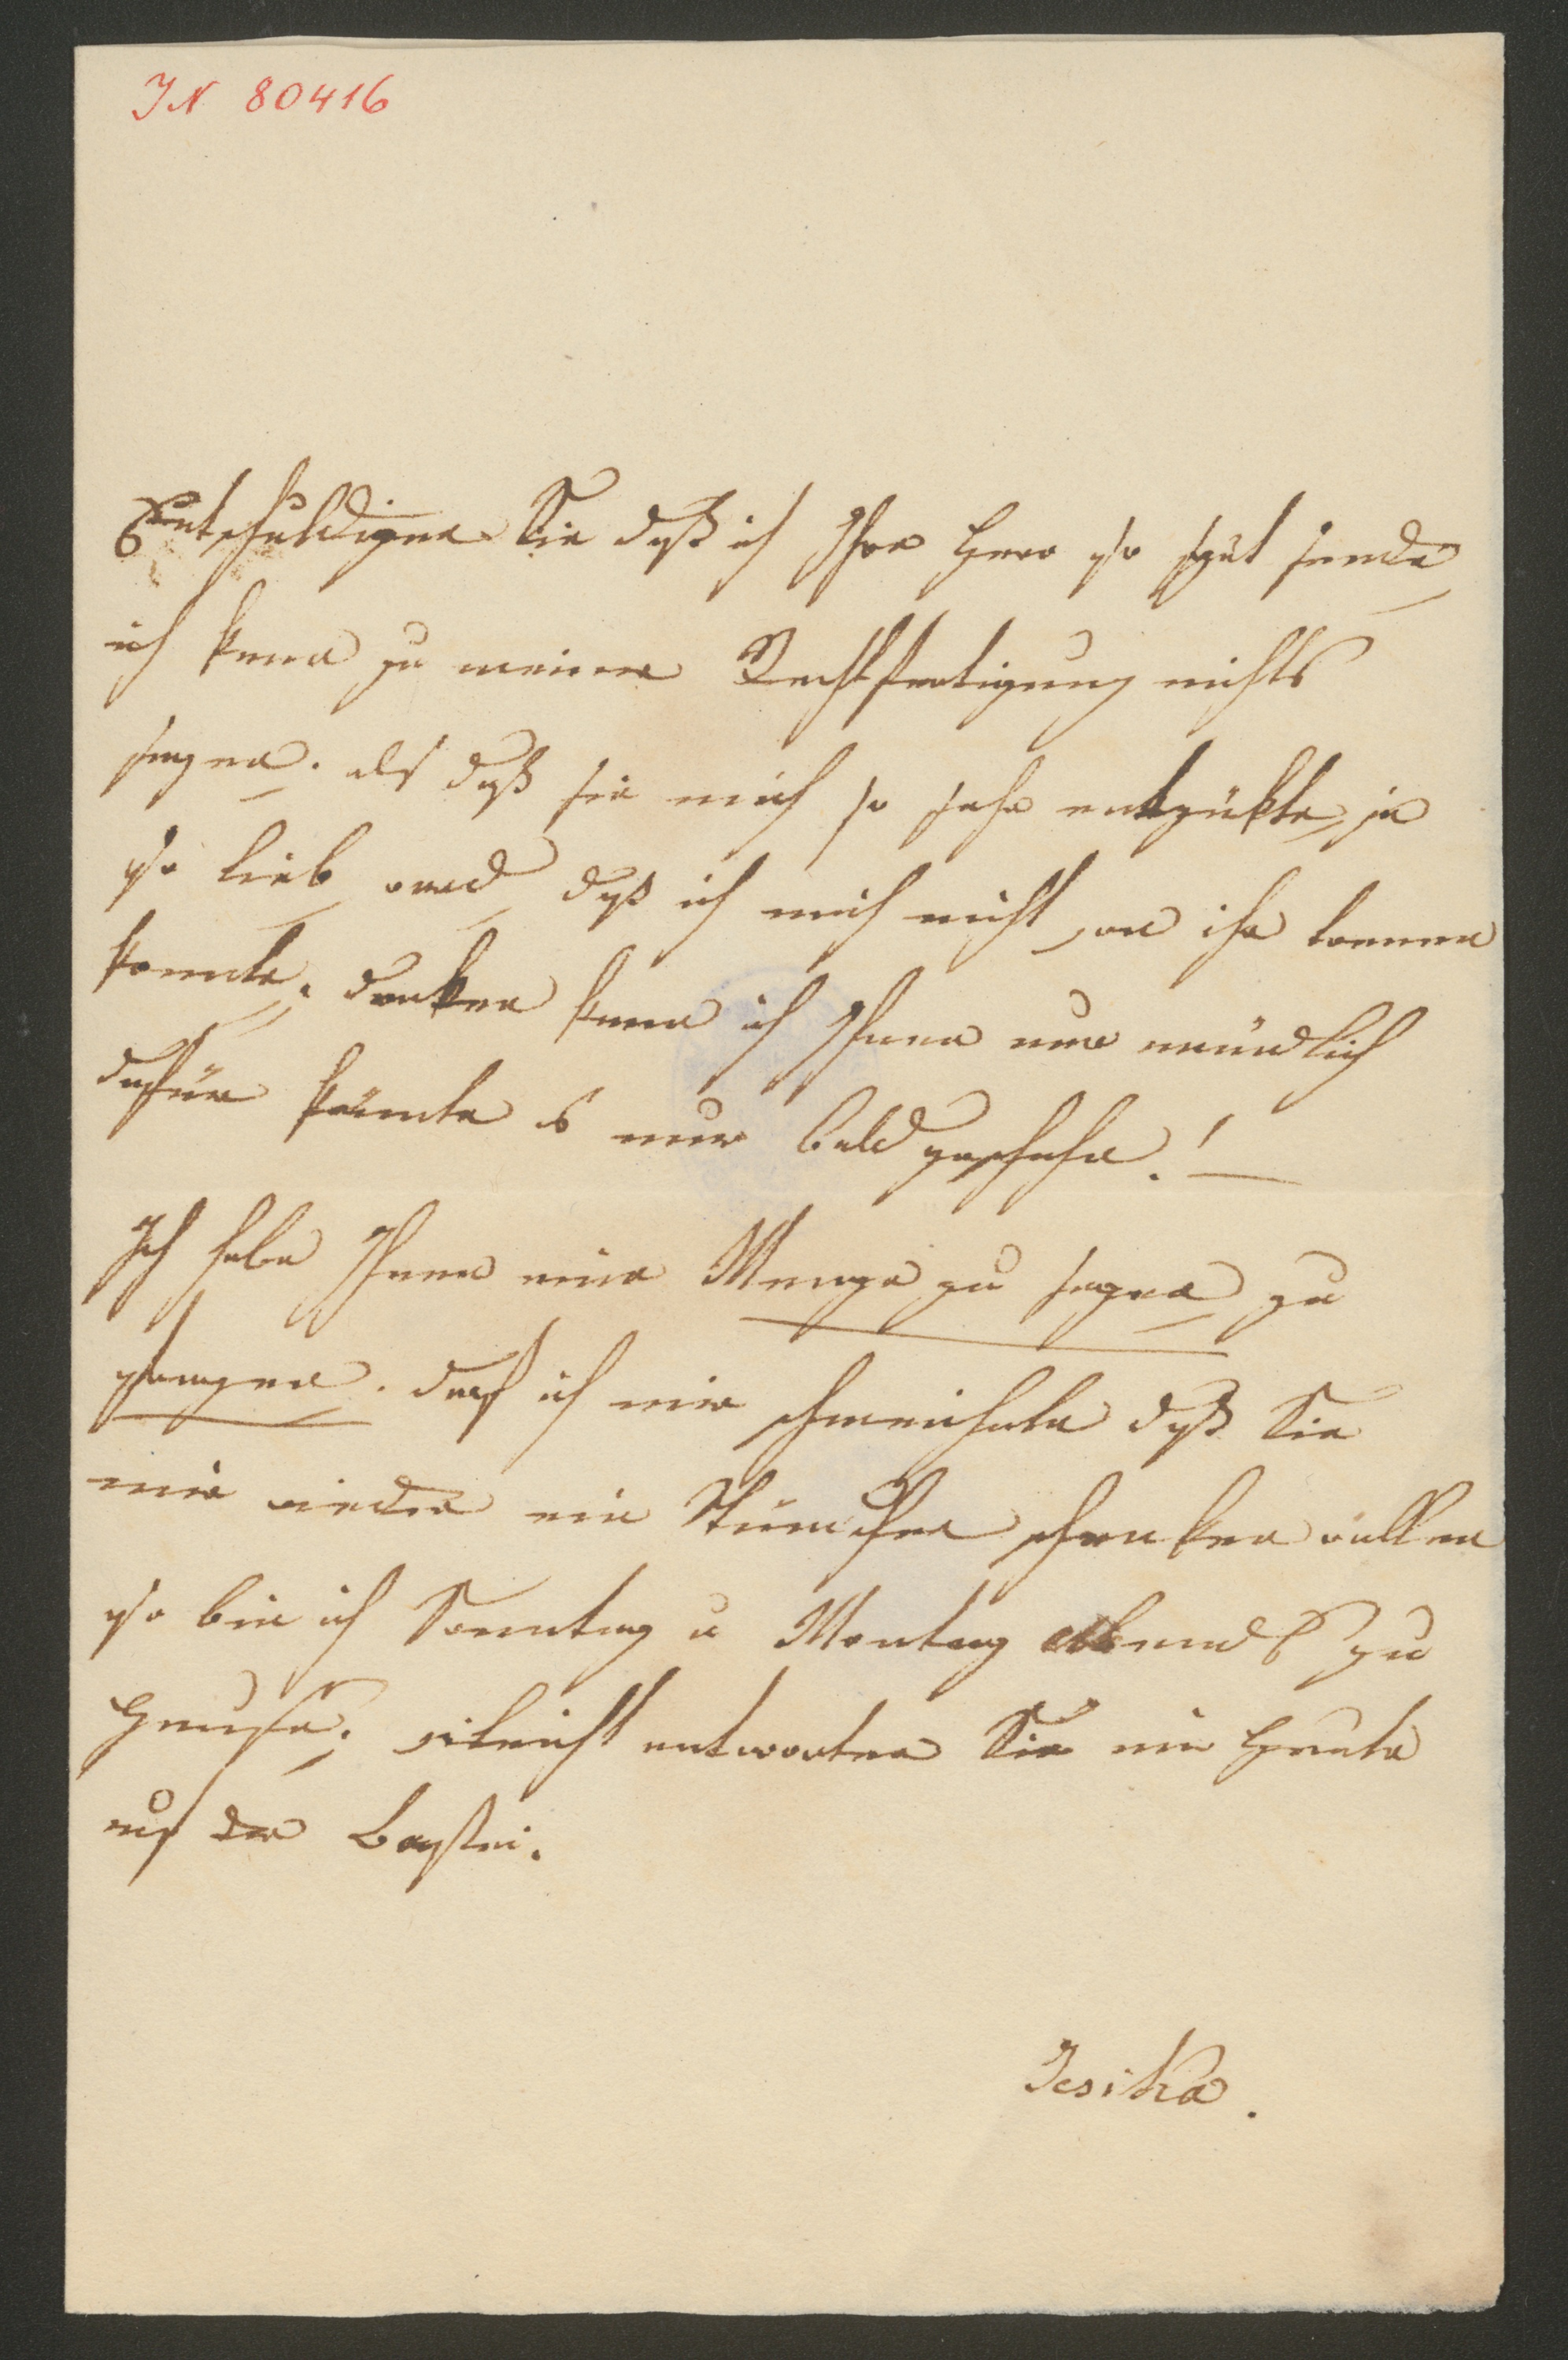 IN 80416
Entschuldigen Sie daß ich Ihre Hero so spät sende,
ich kann zu meiner Rechtfertigung nichts
sagen. als daß sie mich so sehr entzükte, ja
so lieb ward daß ich mich nicht von ihr trennen
konnte, danken kann ich Ihnen nur mündlich
dafür könnte es nur bald geschehn.! —
Ich habe Ihnen eine Menge zu sagen, zu
fragen. darf ich mir schmeicheln daß Sie
mir wieder ein Stündchen schenken wollen
so bin ich Sonntag u Montag abends zu
Hause; vileicht antworten Sie mir heute
auf der Bastei.
Jesika.